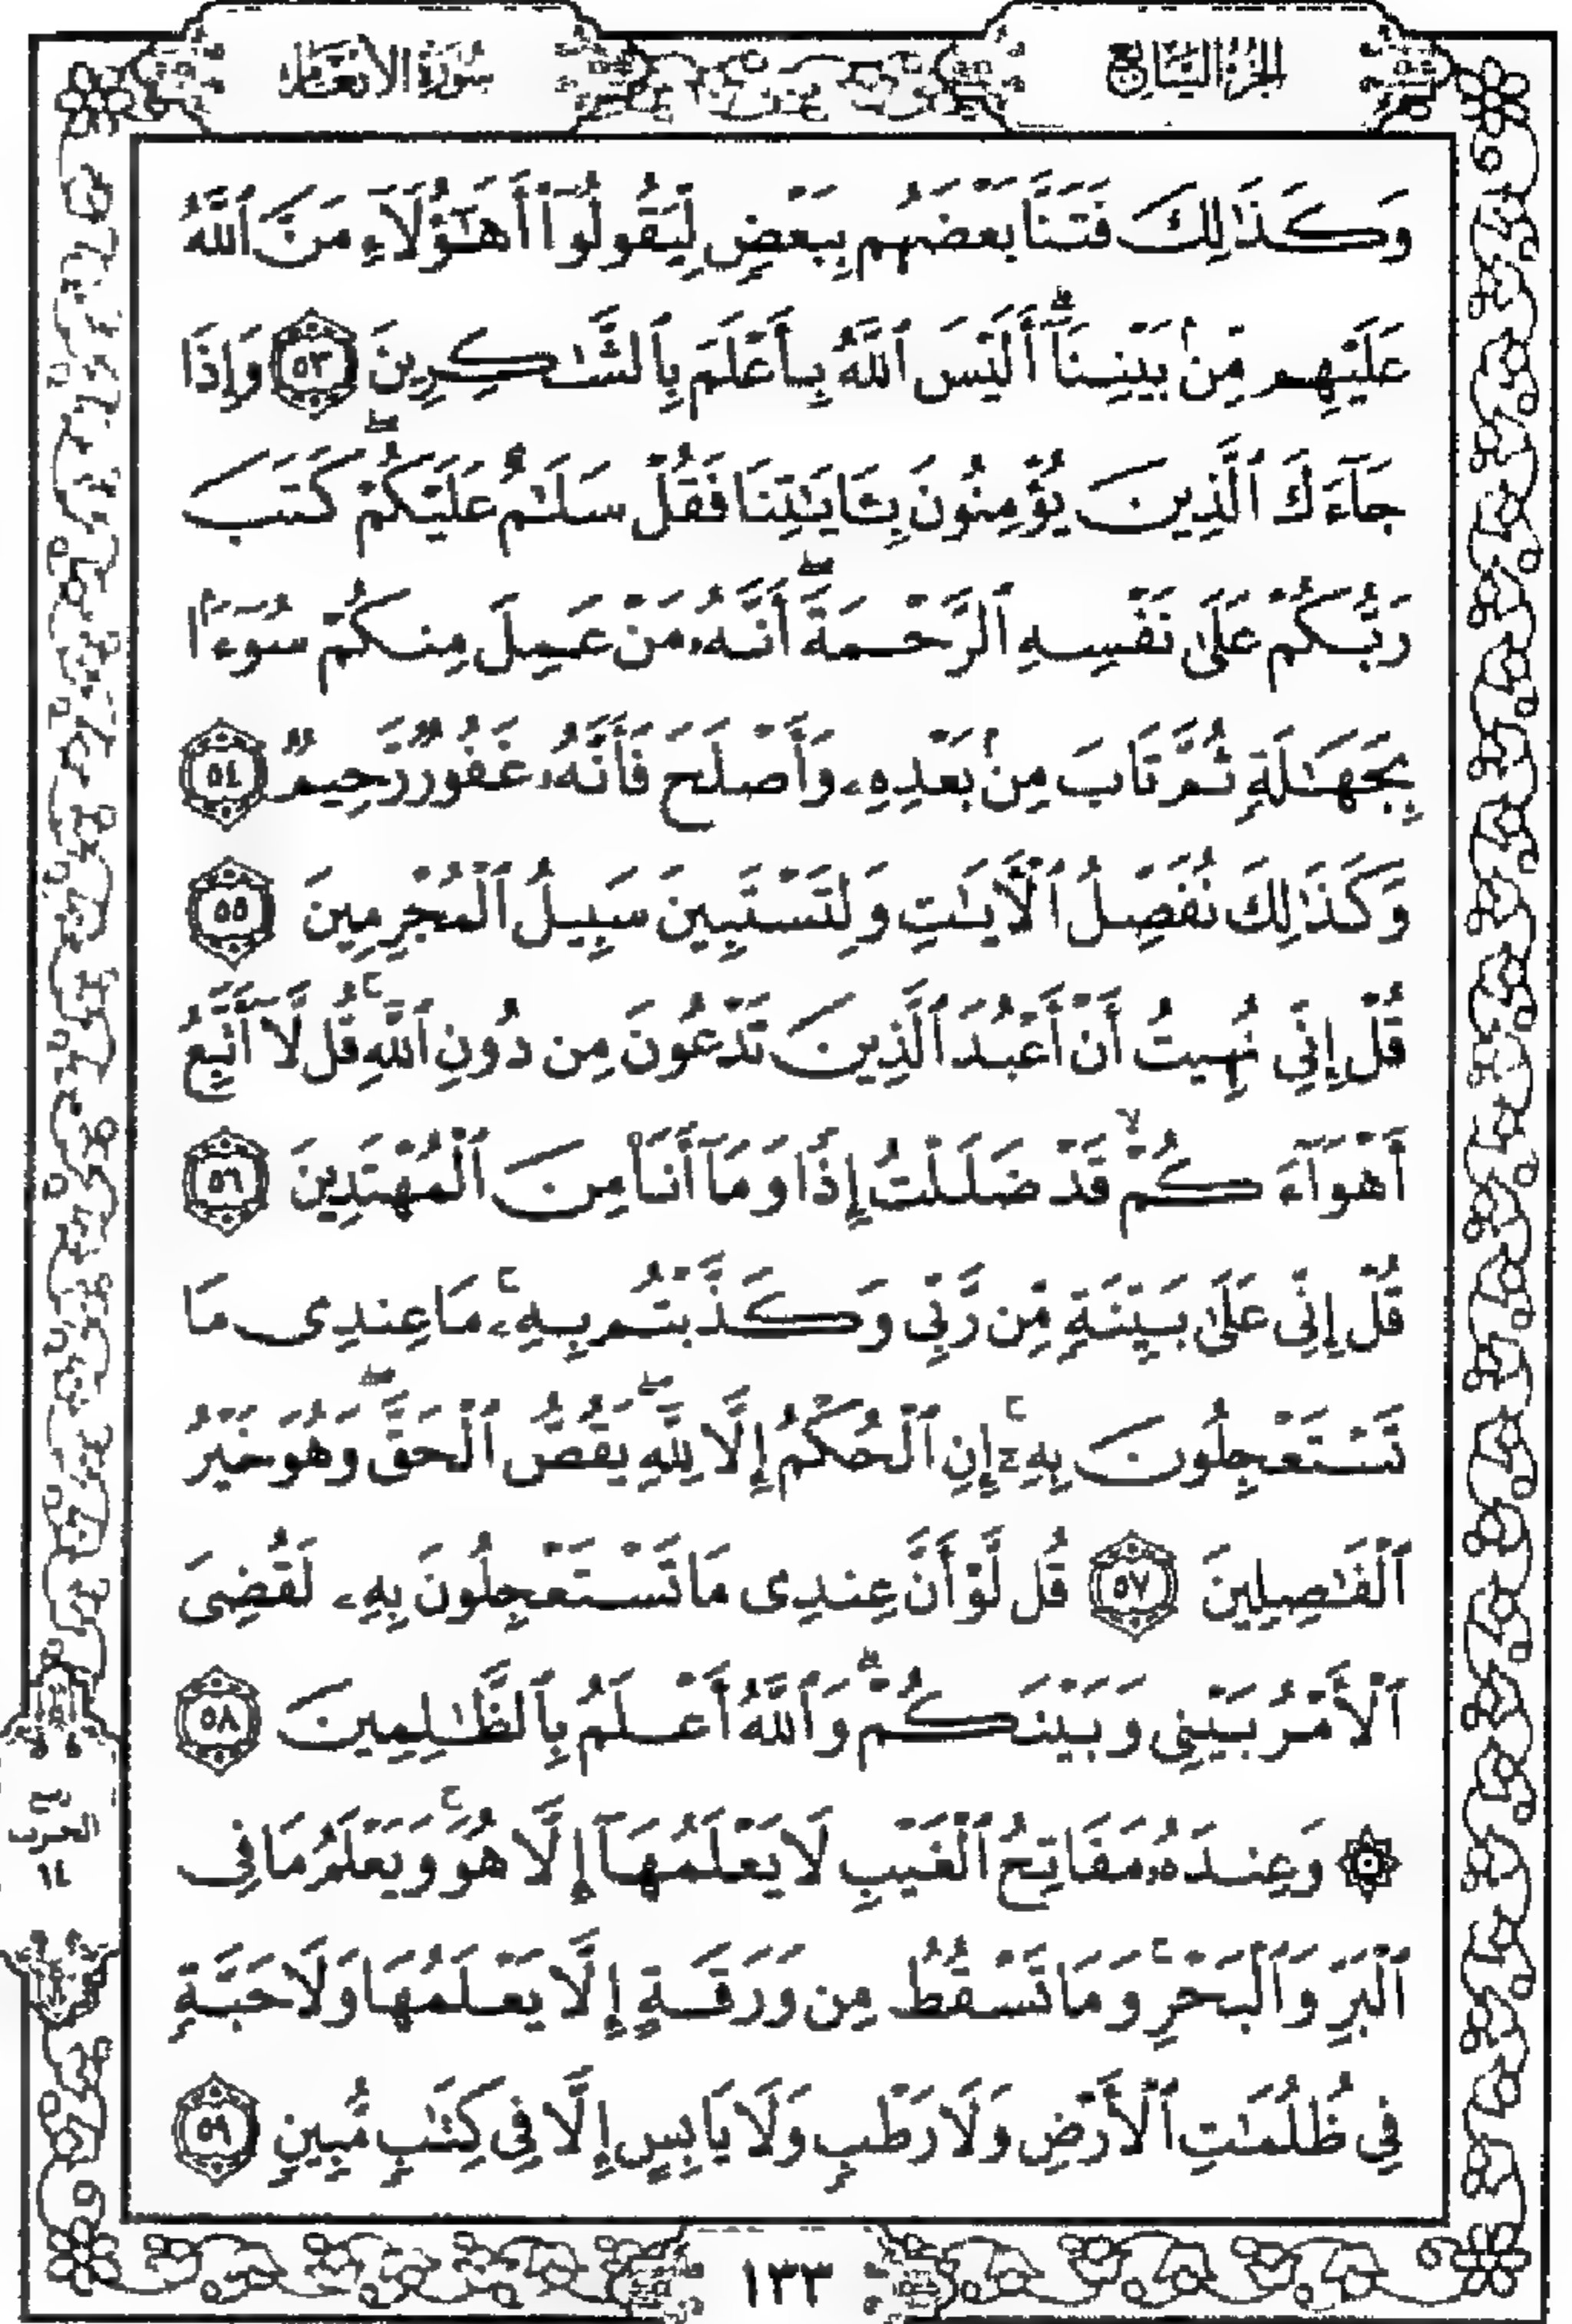 الجزء السابع
سورة الأنعام
وَكَذَٰلِكَ فَتَنَّا بَعْضَهُم بِبَعْضٍ لِّيَقُولُوٓا۟ أَهَٰٓؤُلَآءِ مَنَّ ٱللَّهُ
عَلَيْهِم مِّنۢ بَيْنِنَآ ۗ أَلَيْسَ ٱللَّهُ بِأَعْلَمَ بِٱلشَّٰكِرِينَ ٥٣ وَإِذَا
جَآءَكَ ٱلَّذِينَ يُؤْمِنُونَ بِـَٔايَٰتِنَا فَقُلْ سَلَٰمٌ عَلَيْكُمْ ۖ كَتَبَ
رَبُّكُمْ عَلَىٰ نَفْسِهِ ٱلرَّحْمَةَ ۖ أَنَّهُۥ مَنْ عَمِلَ مِنكُمْ سُوٓءًۢا
بِجَهَٰلَةٍ ثُمَّ تَابَ مِنۢ بَعْدِهِۦ وَأَصْلَحَ فَأَنَّهُۥ غَفُورٌ رَّحِيمٌ ٥٤
وَكَذَٰلِكَ نُفَصِّلُ ٱلْـَٔايَٰتِ وَلِتَسْتَبِينَ سَبِيلُ ٱلْمُجْرِمِينَ ٥٥
قُلْ إِنِّى نُهِيتُ أَنْ أَعْبُدَ ٱلَّذِينَ تَدْعُونَ مِن دُونِ ٱللَّهِ ۚ قُل لَّآ أَتَّبِعُ
أَهْوَآءَكُمْ ۙ قَدْ ضَلَلْتُ إِذًا وَمَآ أَنَا۠ مِنَ ٱلْمُهْتَدِينَ ٥٦
قُلْ إِنِّى عَلَىٰ بَيِّنَةٍ مِّن رَّبِّى وَكَذَّبْتُم بِهِۦ ۚ مَا عِندِى مَا
تَسْتَعْجِلُونَ بِهِۦٓ ۚ إِنِ ٱلْحُكْمُ إِلَّا لِلَّهِ ۖ يَقُصُّ ٱلْحَقَّ ۖ وَهُوَ خَيْرُ
ٱلْفَٰصِلِينَ ٥٧ قُل لَّوْ أَنَّ عِندِى مَا تَسْتَعْجِلُونَ بِهِۦ لَقُضِىَ
ٱلْأَمْرُ بَيْنِى وَبَيْنَكُمْ ۗ وَٱللَّهُ أَعْلَمُ بِٱلظَّٰلِمِينَ ٥٨
۞ وَعِندَهُۥ مَفَاتِحُ ٱلْغَيْبِ لَا يَعْلَمُهَآ إِلَّا هُوَ ۚ وَيَعْلَمُ مَا فِى
ٱلْبَرِّ وَٱلْبَحْرِ ۚ وَمَا تَسْقُطُ مِن وَرَقَةٍ إِلَّا يَعْلَمُهَا وَلَا حَبَّةٍ
فِى ظُلُمَٰتِ ٱلْأَرْضِ وَلَا رَطْبٍ وَلَا يَابِسٍ إِلَّا فِى كِتَٰبٍ مُّبِينٍ ٥٩
الحزب
١٤
١٣٣